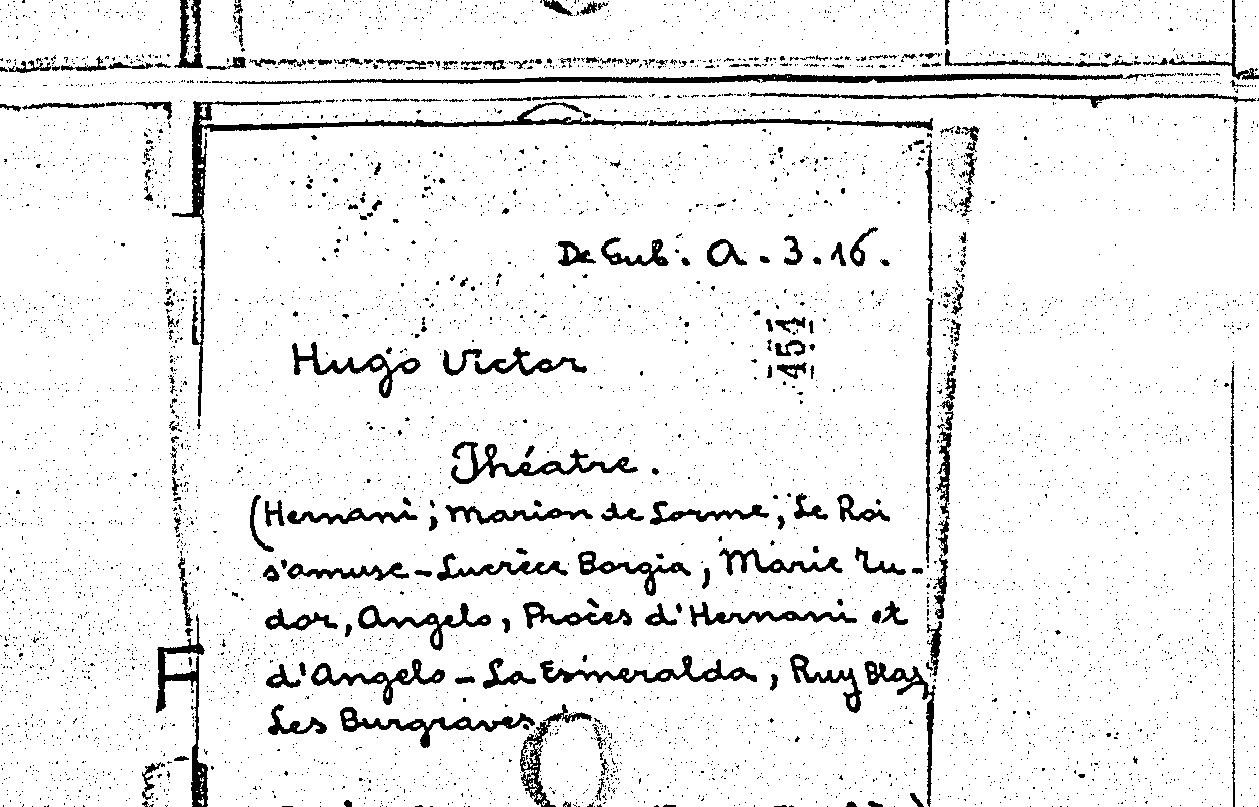 De Gub. A. 3. 16.
451
Hugo Victor
Théatre.
(Hernani ; Marion de Lorme ; Le Roi
s'amuse - Lucrèce Borgia, Marie Tu-
dor, Angelo, Procès d'Hernani et
d'Angelo - La Esmeralda, Ruy Blas,
Les Burgraves.
F